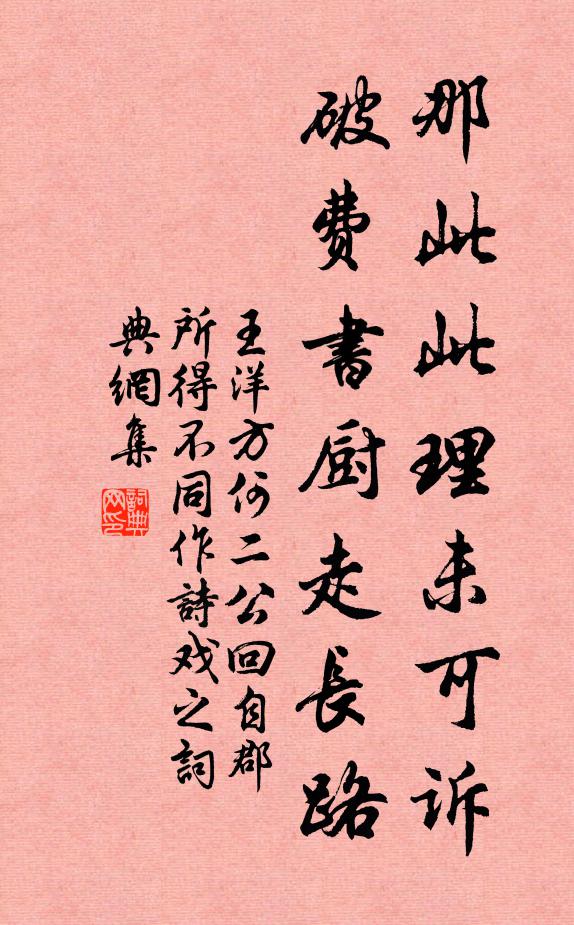 那此此理未可訴
破費書厨走長路
王洋方何二公回自郡
所得不同作詩戏之詞
典網集
詞典
网印